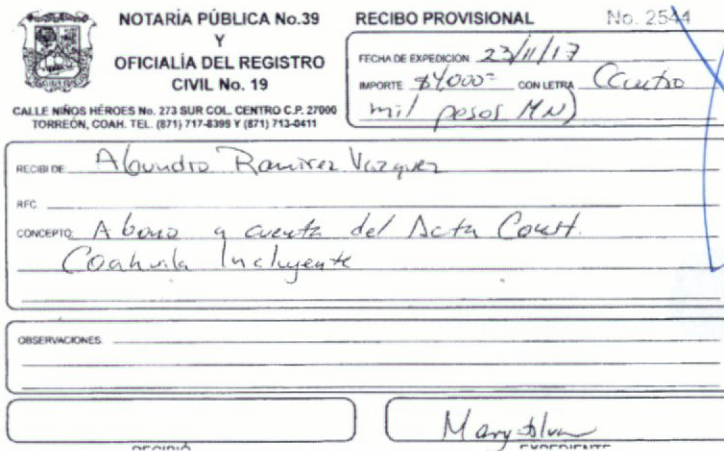 NOTARÍA PÚBLICA No.39
Y
OFICIALÍA DEL REGISTRO
CIVIL No. 19
CALLE NIÑOS HÉROES No. 273 SUR COL. CENTRO C.P. 27000
TORREÓN, COAH. TEL. (871) 717-8399 Y (871) 713-0411
RECIBO PROVISIONAL No. 2544
FECHA DE EXPEDICIÓN 23/11/17
IMPORTE $4,000= CON LETRA (Cuatro
mil pesos MN)
RECIBI DE Alejandro Ramirez Vazquez
RFC
CONCEPTO: Abono a cuenta del Acta Const.
Coahuila Incluyente
OBSERVACIONES
RECIBIÓ
Mary
EXPEDIENTE